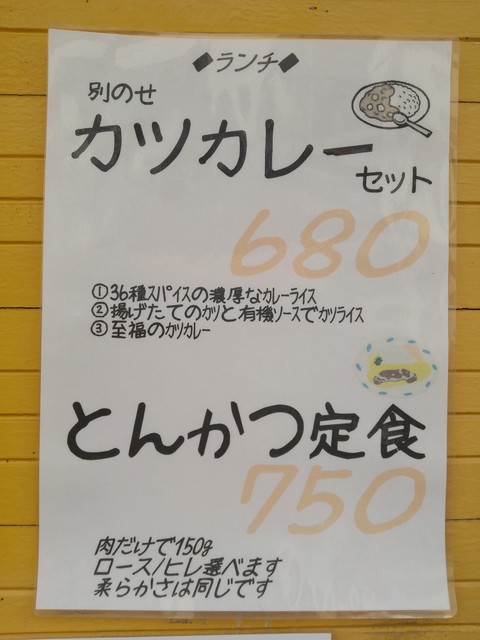 ◆ランチ◆
別のせ
カツカレー
セット
680
①36種スパイスの濃厚なカレーライス
②揚げたてのカツと有機ソースでカツライス
③至福のカツカレー
とんかつ定食
750
肉だけで150g
ロース/ヒレ選べます
柔らかさは同じです